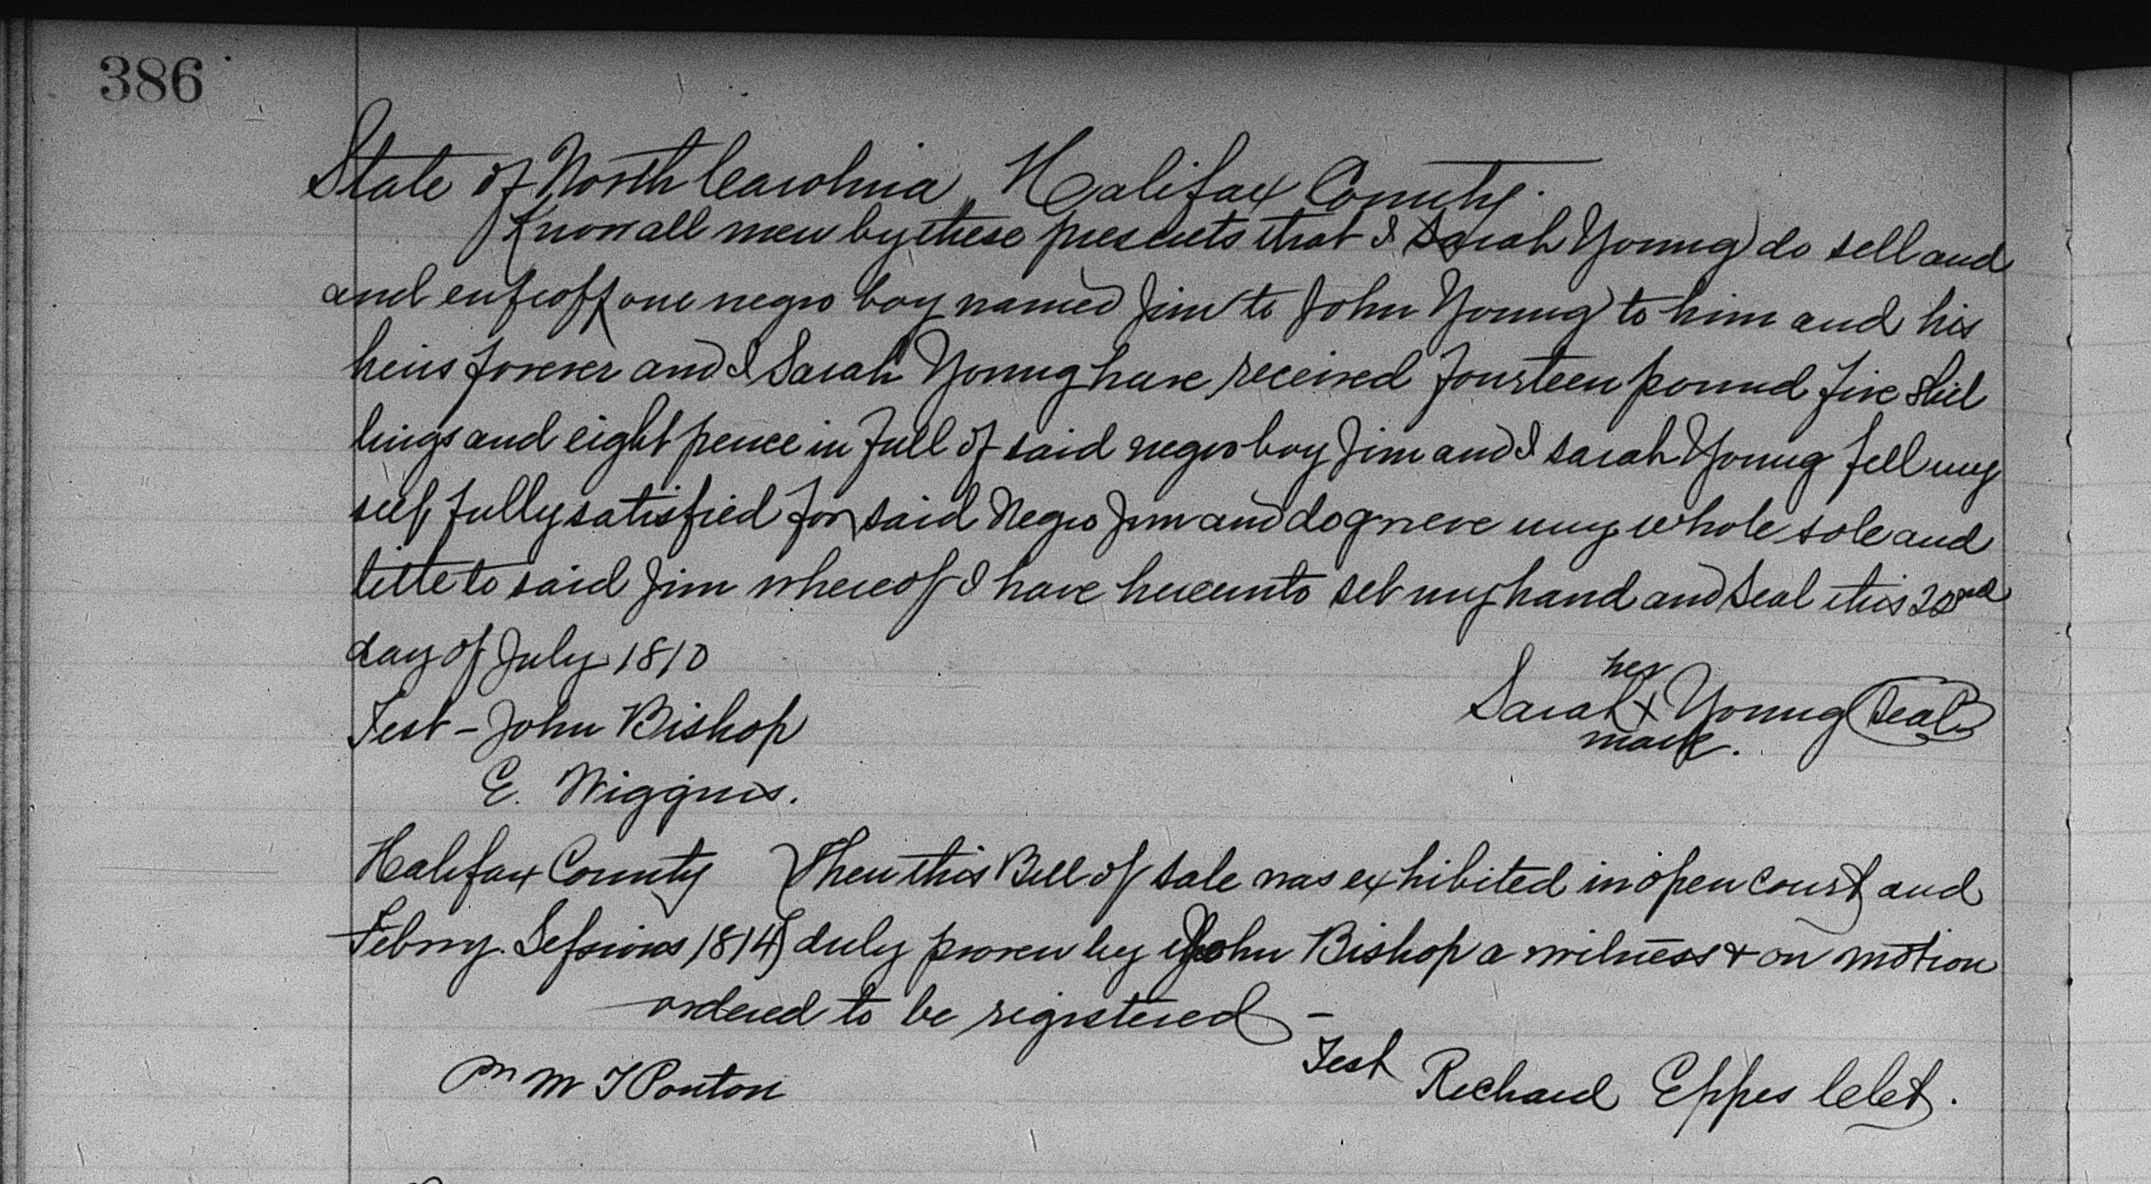 386
State of North Carolina Halifax County.
Know all men by these presents that I Sarah Young do sell and
and enfeoff one negro boy named Jim to John Young to him and his
heirs forever and I Sarah Young have received fourteen pound five shil
lings and eight pence in full of said negro boy Jim and I sarah Young fell my
self fully satisfied for said Negro Jim and do grieve my whole sole and
title to said Jim whereof I have hereunto set my hand and seal this 22nd
day of July 1810
her
Sarah x Young Seal
mark.
Test - John Bishop
E. Wiggins.
Halifax County } Then this Bill of sale was exhibited in open court and
Febry. Sessions 1814 } duly proven by John Bishop a witness & on motion
ordered to be registered -
Test Richard Eppes Clct.
M T Ponton